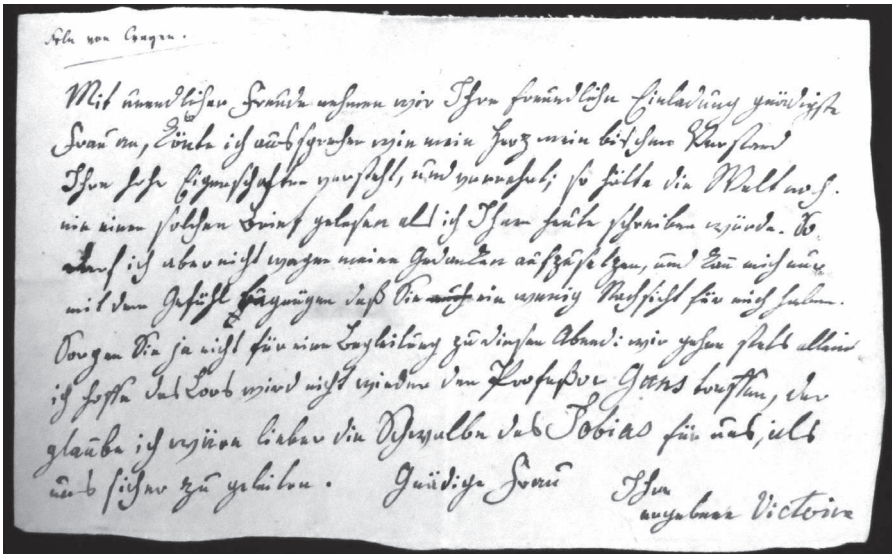 Frln von Crayen.
Mit unendlicher Freude nehmen wir Ihre freundliche Einladung gnädigste
Frau an, könte ich aussprechen wie mein Herz mein bischen Verstand
Ihre hohe Eigenschaften versteht, und verrehrt; so hätte die Welt noch
nie einen solchen Brief gelesen als ich Ihnen heute schreiben würde. So
darf ich aber nicht wagen meine Gedanken aufzusetzen, und kan mich nur
mit dem Gefühl begnügen daß Sie auch ein wenig Nachsicht für mich haben.
Sorgen Sie ja nicht für eine Begleitung zu diesen Abend: wir gehen stets allein
ich hoffe das Loos wird nicht wieder den Profeßor Gans treffen, der
glaube ich wäre lieber die Schwalbe des Tobias für uns, als
uns sicher zu geleiten. Gnädige Frau Ihre
ergebene Victoire